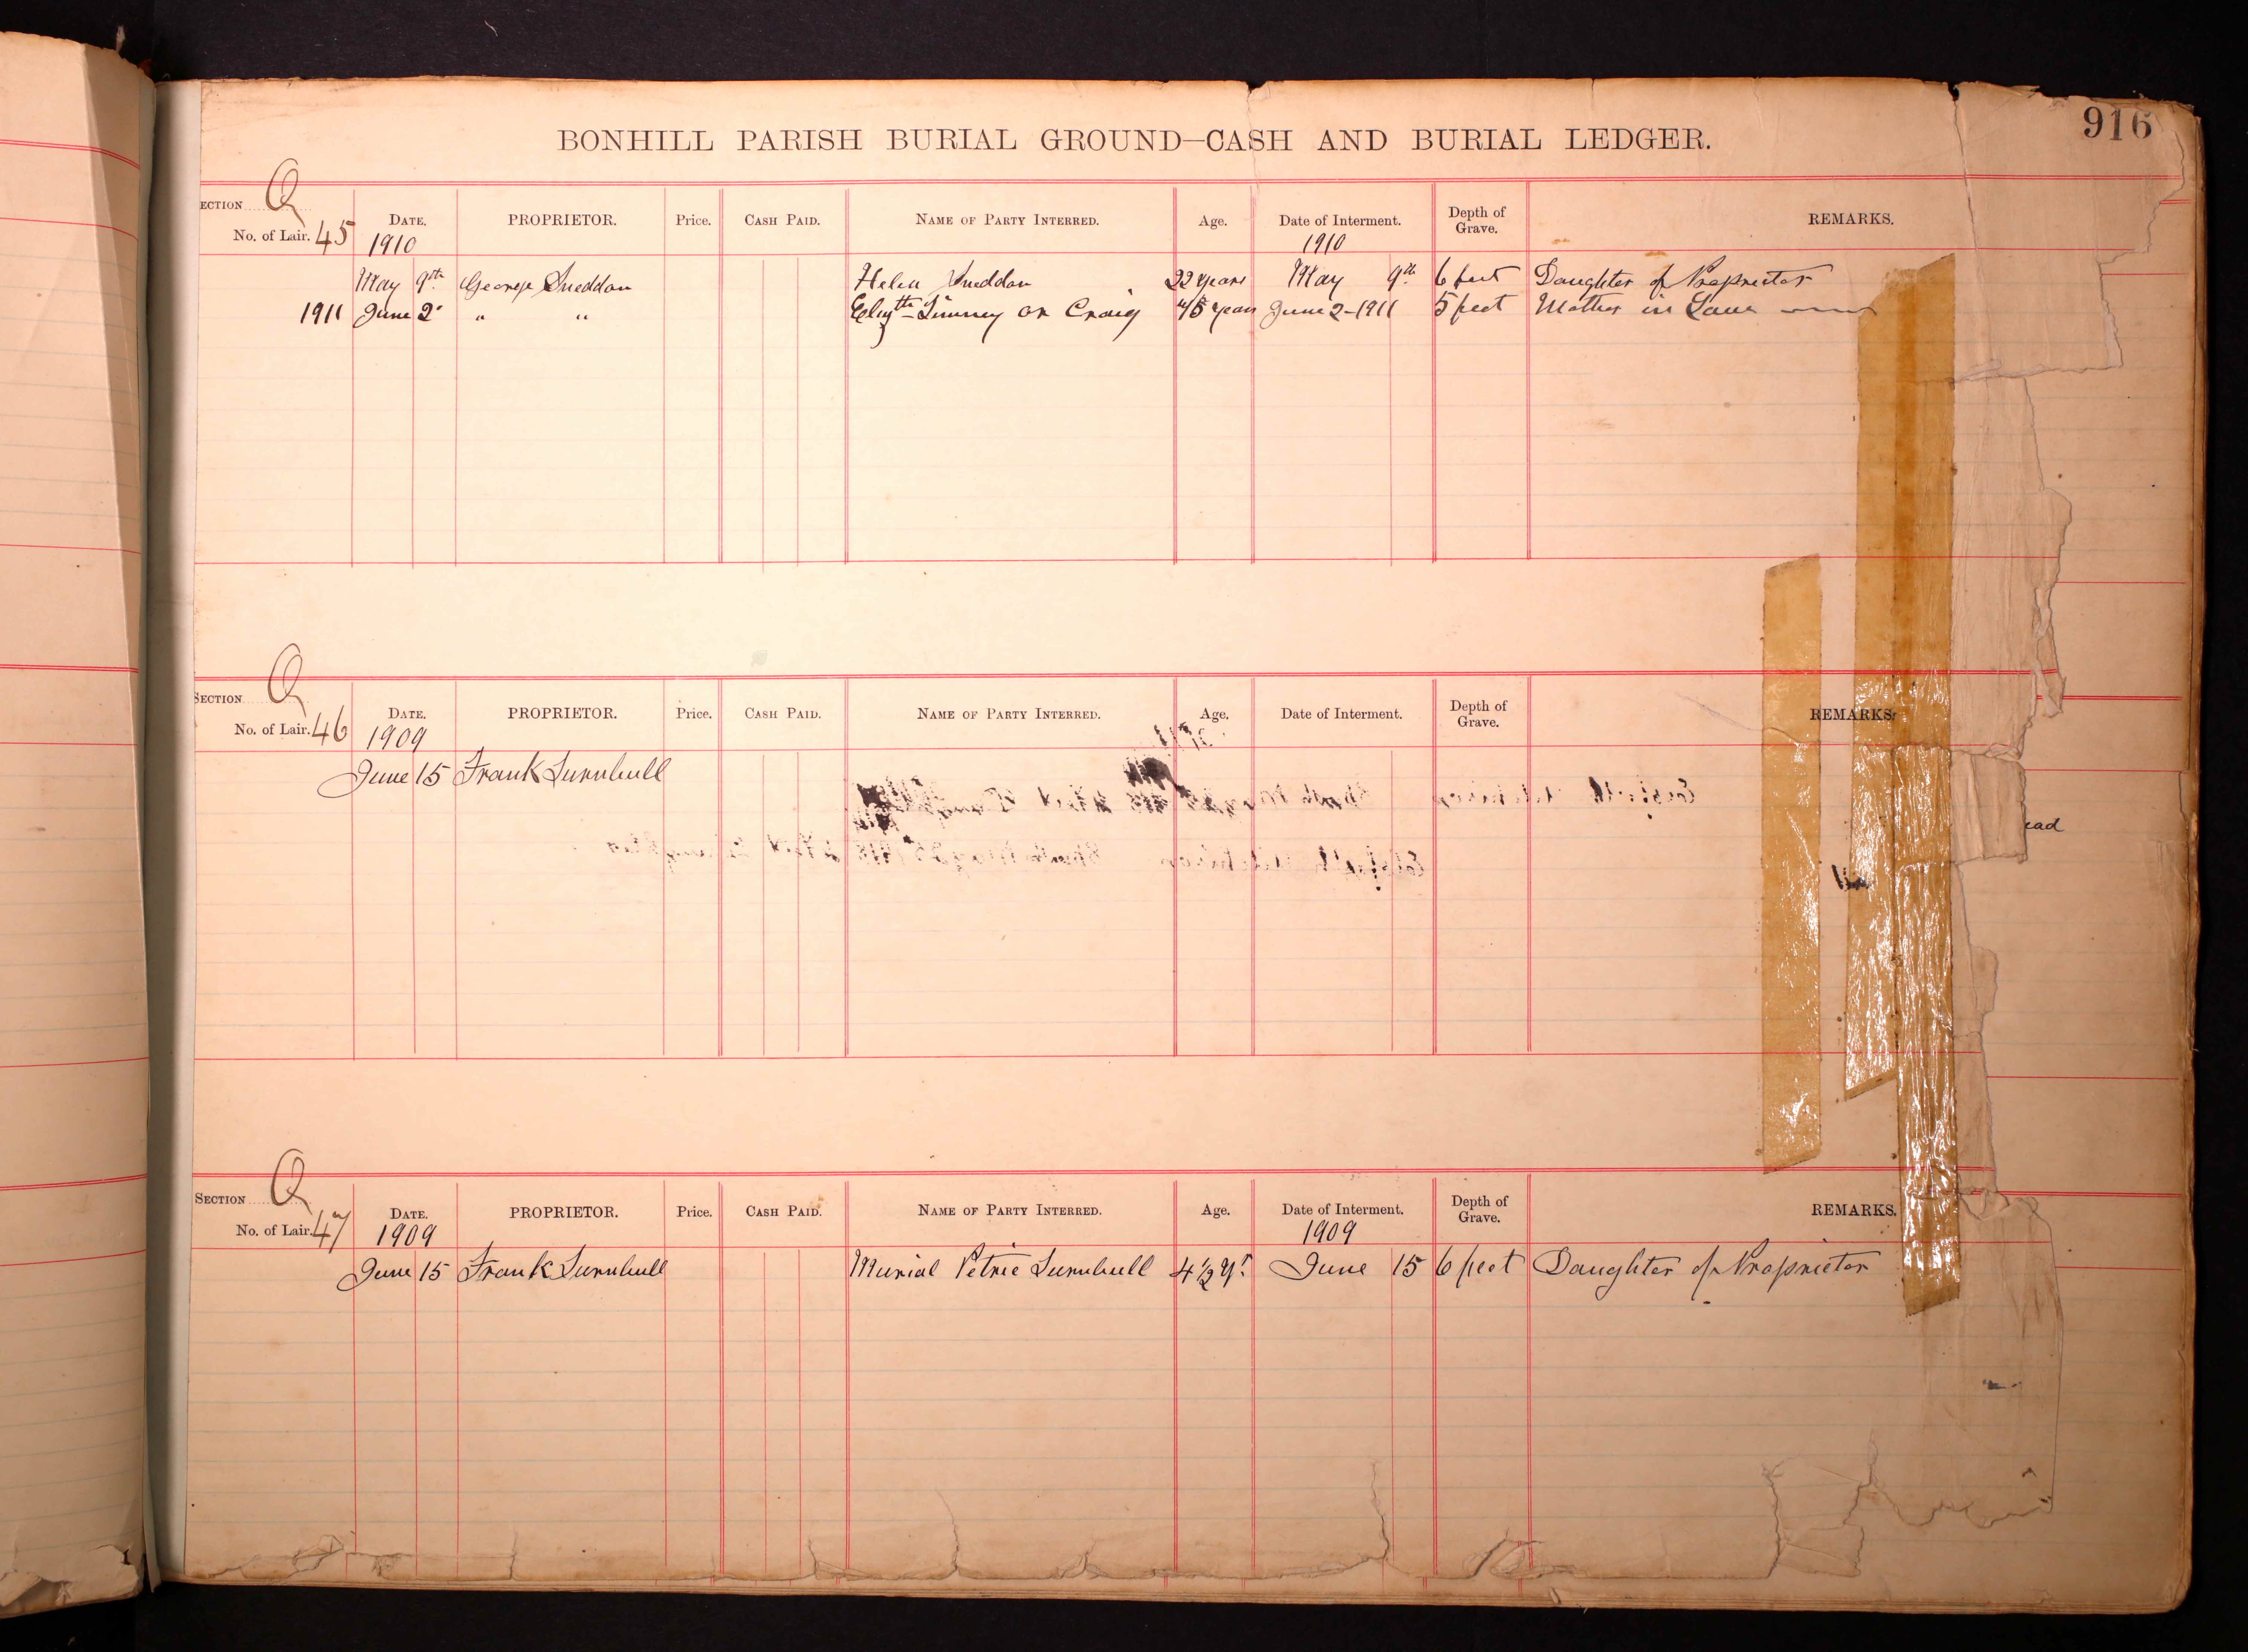 916
BONHILL PARISH BURIAL GROUND—CASH AND BURIAL LEDGER.
ECTION Q
No. of Lair. 45 DATE. PROPRIETOR. Price. CASH PAID. NAME OF PARTY INTERRED. Age. Date of Interment. Depth of Grave. REMARKS.
1910 1910
May 9th George Sneddon Helen Sneddon 22 years May 9th 6 feet Daughter of Proprietor
1911 June 2 " " Elizth or Craig 45 years June 2-1911 5 feet Mother in Law
SECTION Q
No. of Lair. 46 DATE. PROPRIETOR. Price. CASH PAID. NAME OF PARTY INTERRED. Age. Date of Interment. Depth of Grave. REMARKS.
1909
June 15 Frank Turnbull
ead
SECTION Q
No. of Lair. 47 DATE. PROPRIETOR. Price. CASH PAID. NAME OF PARTY INTERRED. Age. Date of Interment. Depth of Grave. REMARKS.
1909 1909
June 15 Frank Turnbull Murial Petrie Turnbull 4½ yr June 15 6 feet Daughter of Proprietor